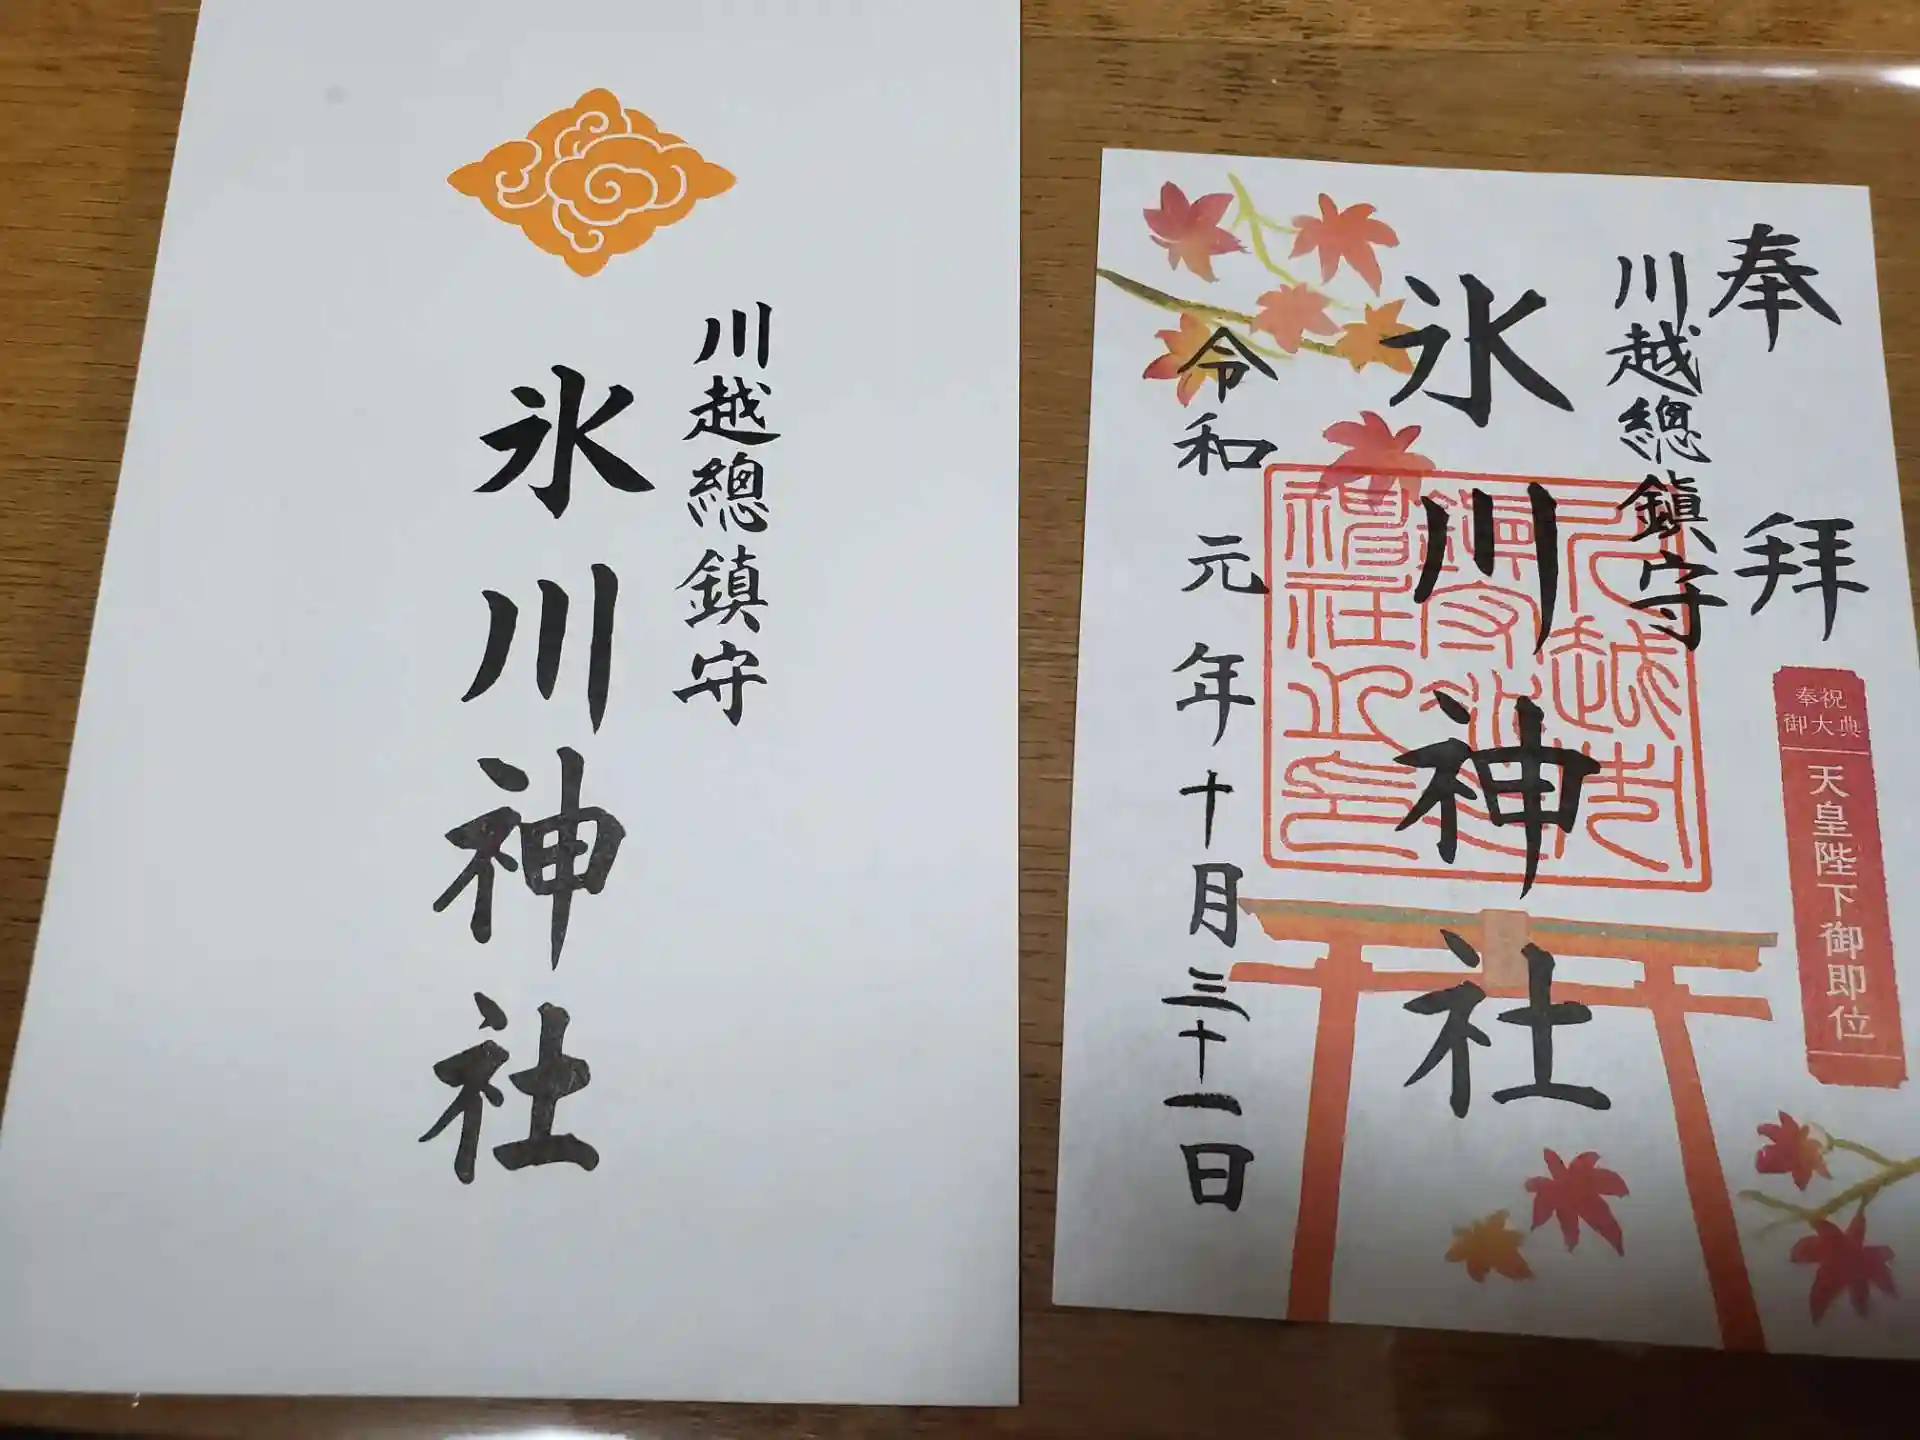 川越總鎮守
氷川神社
奉拝
川越總鎮守
氷川神社
令和元年十月三十一日
奉祝
御大典
天皇陛下御即位